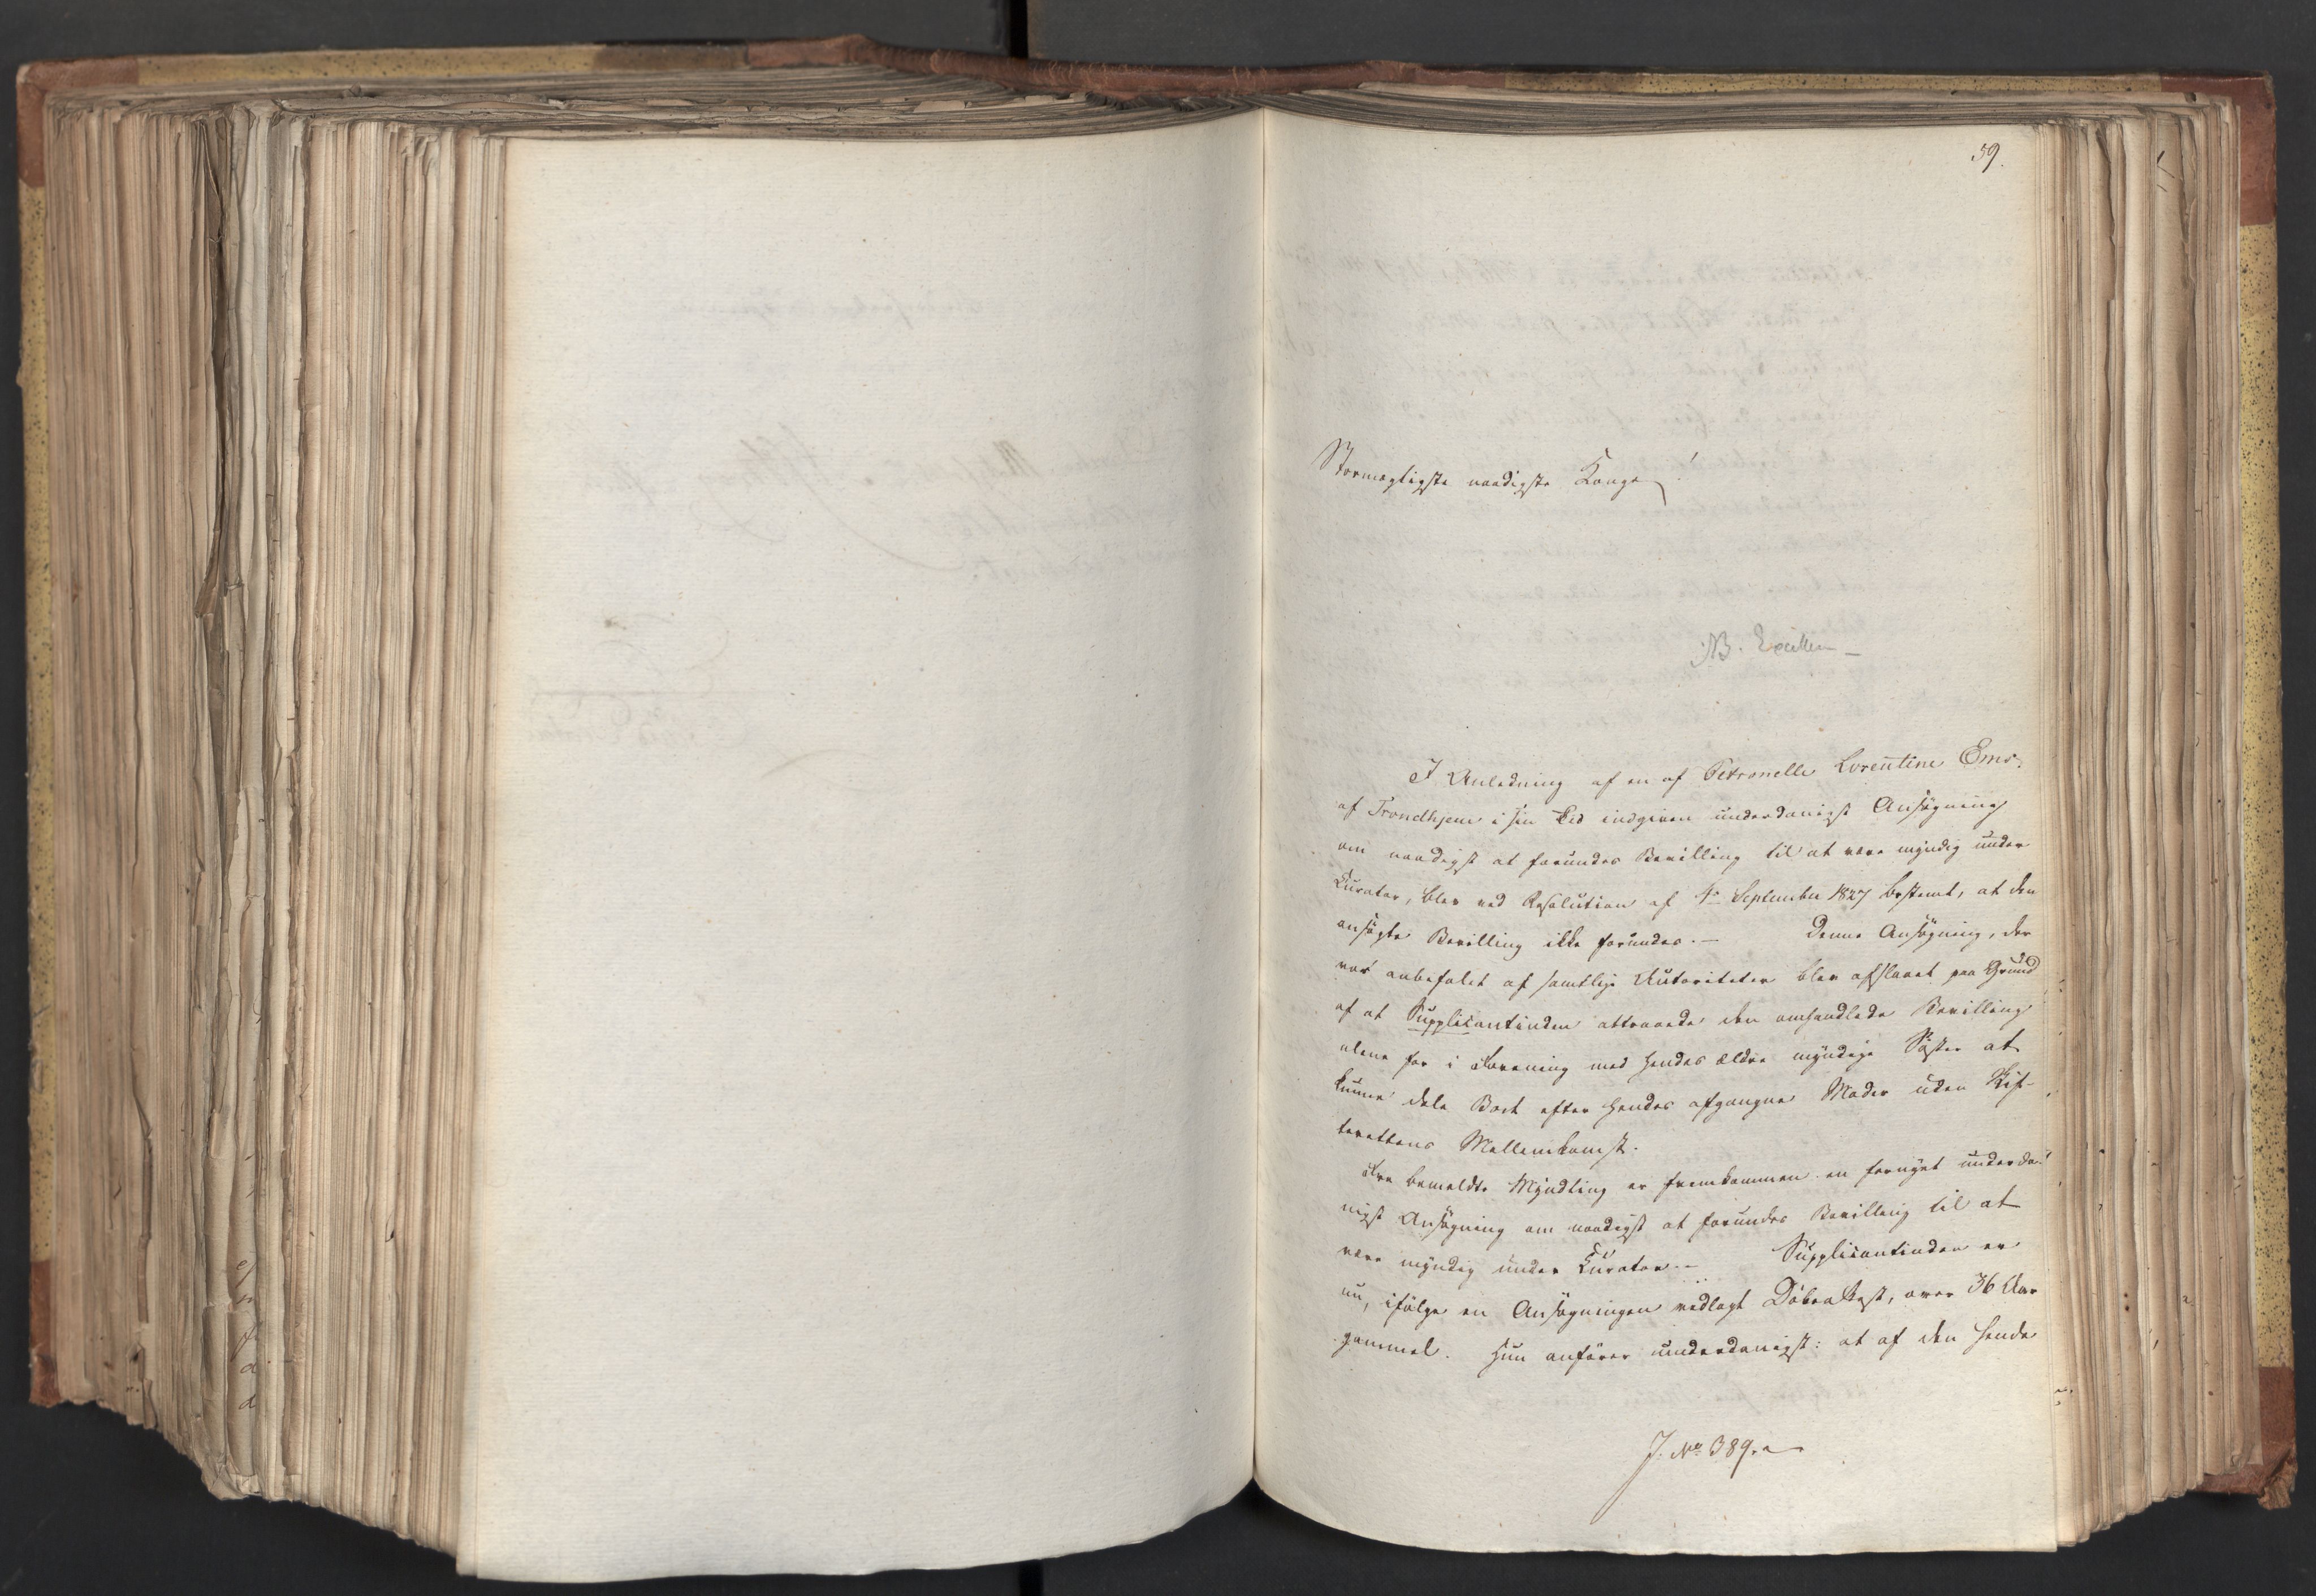 59.
Stormægtigste naadigste Konge!
NB.
I Anledning af en af Petronelle Lorentine Ems
af Trondhjem i sin Tid indgiven underdanigst Ansøgning
om naadigst at forundes Bevilling til at være myndig under
Curator, blev ved Resolution af 4de September 1827 bestemt, at den
ansøgte Bevilling ikke forundes. — Denne Ansøgning, der
var anbefalet af samtlige Autoriteter blev afslaaet paa Grund
af at Supplicantinden attraaede den omhandlede Bevilling
alene for i Forening med hendes ældre myndige Søster at
kunne dele Boet efter hendes afgangne Moder uden Skif-
terettens Mellemkomst.
Fra bemeldte Myndling er fremkommen en fornyet underda-
nigst Ansøgning om naadigst at forundes Bevilling til at
være myndig under Curator. — Supplicantinden er
nu, ifølge en Ansøgningen vedlagt Døbeattest, over 36 Aar
gammel. Hun anfører underdanigst: at af den hende
J. No 389. a